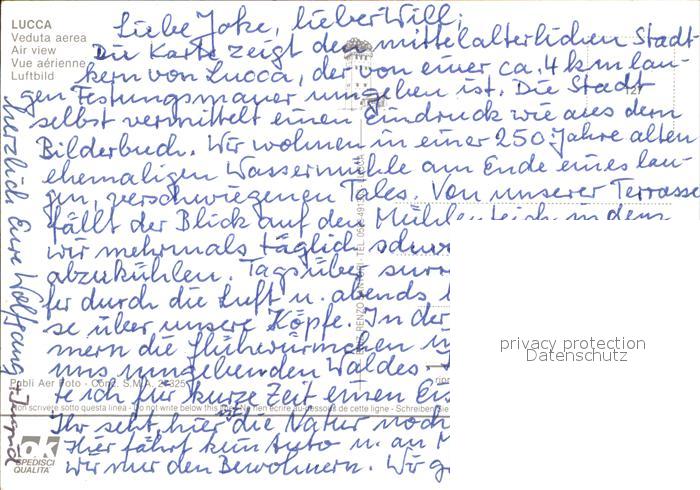 LUCCA
Veduta aerea
Air view
Vue aérienne
Luftbild
Liebe Joke, lieber Will,
Die Karte zeigt den mittelalterlichen Stadt-
kern von Lucca, der von einer ca. 4 km lan-
gen Festungsmauer umgeben ist. Die Stadt
selbst vermittelt einen Eindruck wie aus dem
Bilderbuch. Wir wohnen in einer 250 Jahre alten
ehemaligen Wassermühle am Ende eines lan-
gen, verschwiegenen Tales. Von unserer Terrasse
fällt der Blick auf den Mühlenteich, in dem
wir mehrmals täglich
abzukühlen. Tagsüber
fer durch die Luft u. abends
se über unsere Köpfe. In der
mern die Glühwürmchen
uns umgebenden Waldes
te ich für kurze Zeit einen
Ihr seht, hier ist die Natur noch
Hier fährt kein Auto u. an
wir nur den Bewohnern. Wir
herzlich Eure Wolfgang + Ingrid
Publi Aer Foto - Conc. S.M.A. 27325
Non scrivere sotto questa linea - Do not write below this line - Ne rien écrire au-dessous de cette ligne - Schreiben Sie
ok
SPEDISCI
QUALITA'
privacy protection
Datenschutz